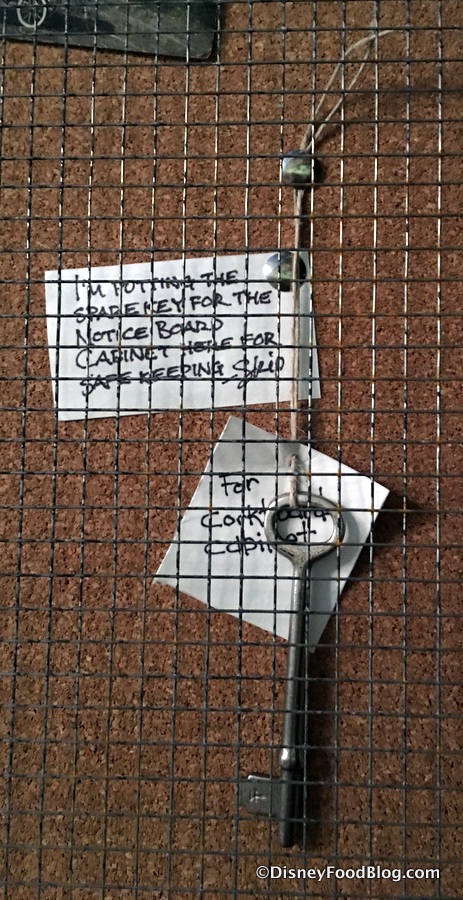 I'M PUTTING THE
SPARE KEY FOR THE
NOTICE BOARD
CABINET HERE FOR
SAFE KEEPING Skip
For
Corkboard
Cabinet
4
©DisneyFoodBlog.com